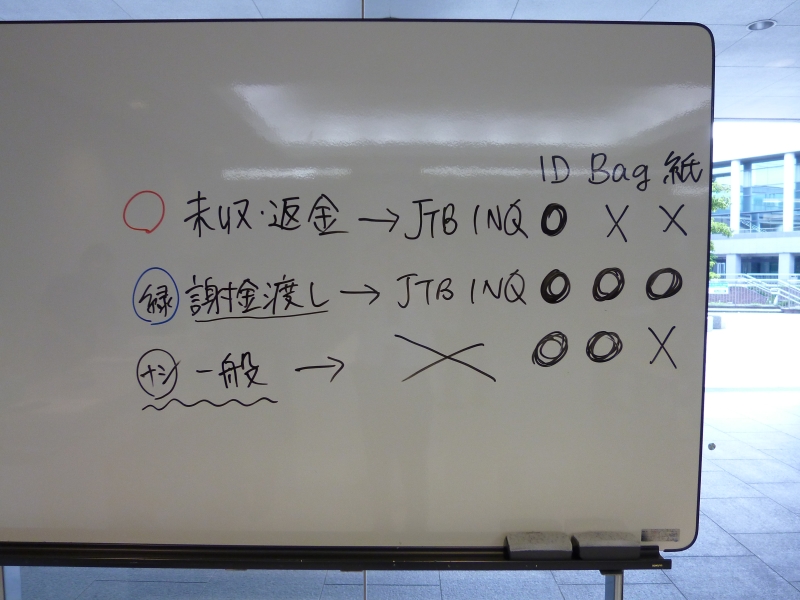 ID Bag 紙
○ 未収・返金 → JTB INQ ○ × ×
緑 謝金渡し → JTB INQ ○ ○ ○
ナシ 一般 → × ○ ○ ×